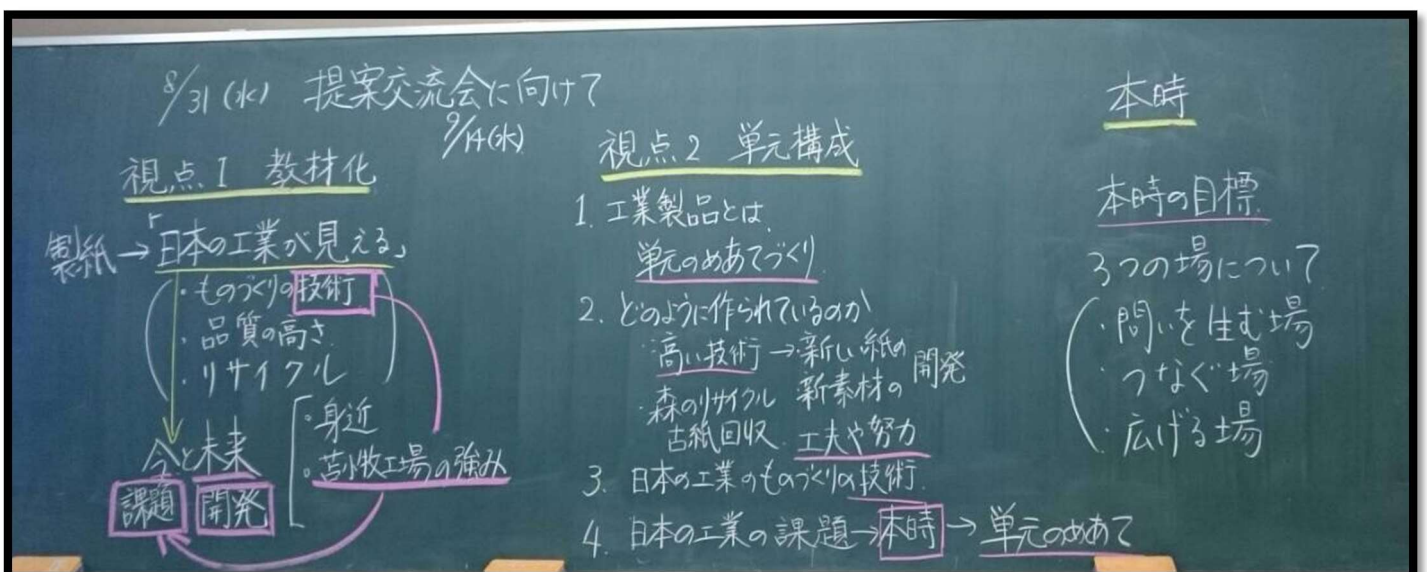 8/31(水) 提案交流会に向けて
9/14(水)
視点1 教材化
製紙→「日本の工業が見える」
・ものづくりの技術
・品質の高さ
・リサイクル
今と未来
課題 開発
・身近
・苫小牧工場の強み
視点2 単元構成
1. 工業製品とは
単元のめあてづくり
2. どのように作られているのか
・高い技術→新しい紙の
新素材の 開発
・森のリサイクル
古紙回収 工夫や努力
3. 日本の工業のものづくりの技術
4. 日本の工業の課題→本時→単元のめあて
本時
本時の目標
3つの場について
・問いを生む場
・つなぐ場
・広げる場